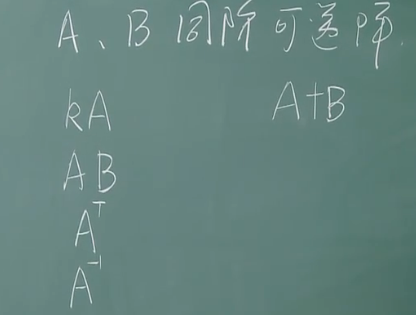 A、B 同阶可逆阵.
kA
A+B
AB
Aᵀ
A⁻¹